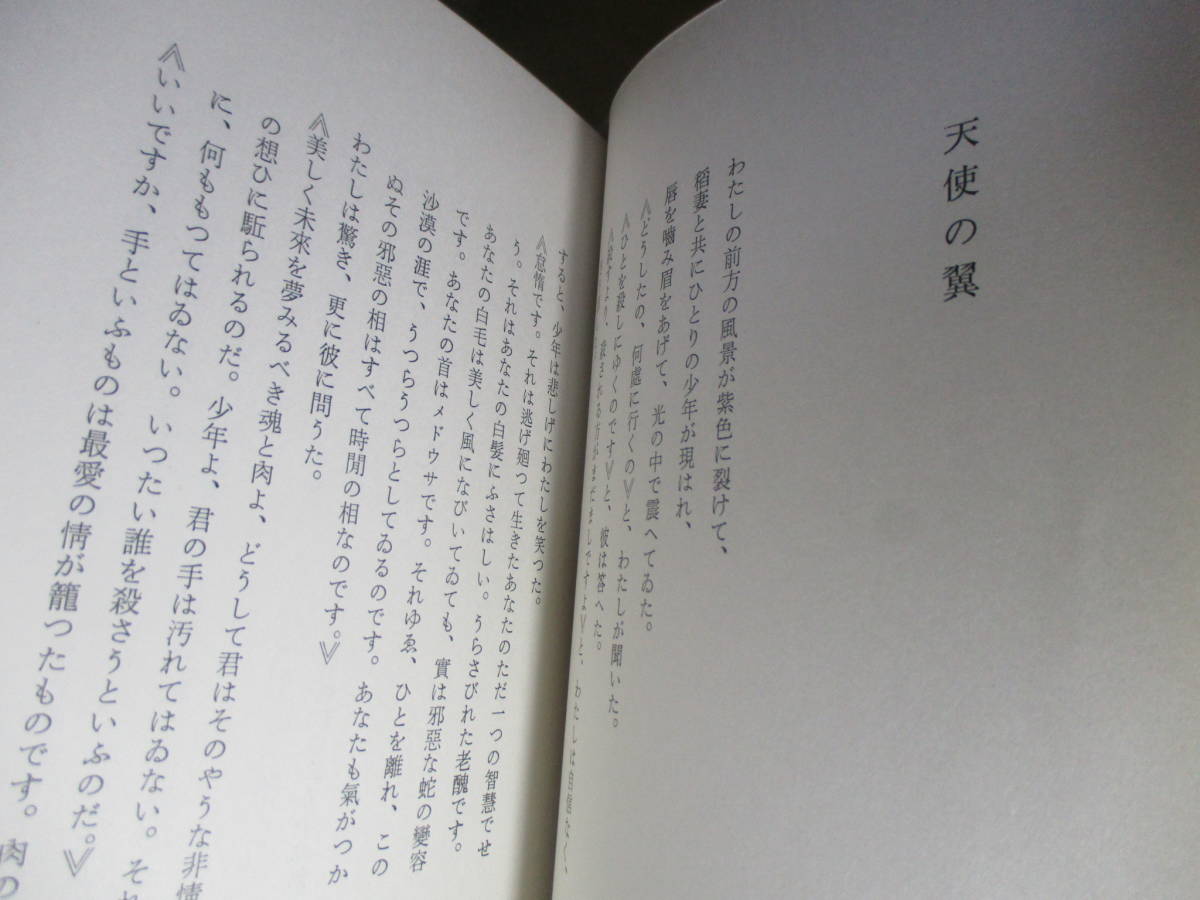 天使の翼
わたしの前方の風景が紫色に裂けて、
稻妻と共にひとりの少年が現はれ、
唇を嚙み眉をあげて、光の中で震へてゐた。
《どうしたの、何處に行くの》と、わたしが聞いた。
《ひとを殺しにゆくのです》と、彼は答へた。
《殺すより、殺される方がまだましですよ》と、わたしは自信なく、
すると、少年は悲しげにわたしを笑つた。
《怠惰です。それは逃げ廻つて生きたあなたのただ一つの智慧でせ
う。それはあなたの白髮にふさはしい。うらさびれた老醜です。
あなたの白毛は美しく風になびいてゐても、實は邪惡な蛇の變容
です。あなたの首はメドウサです。それゆゑ、ひとを離れ、この
沙漠の涯で、うつらうつらとしてゐるのです。あなたも氣がつか
ぬその邪惡の相はすべて時間の相なのです。》
わたしは驚き、更に彼に問うた。
《美しく未來を夢みるべき魂と肉よ、どうして君はそのやうな非情
の想ひに駈られるのだ。少年よ、君の手は汚れてはゐない。それ
に、何ももつてはゐない。いつたい誰を殺さうといふのだ。》
《いいですか、手といふものは最愛の情が籠つたものです。肉の